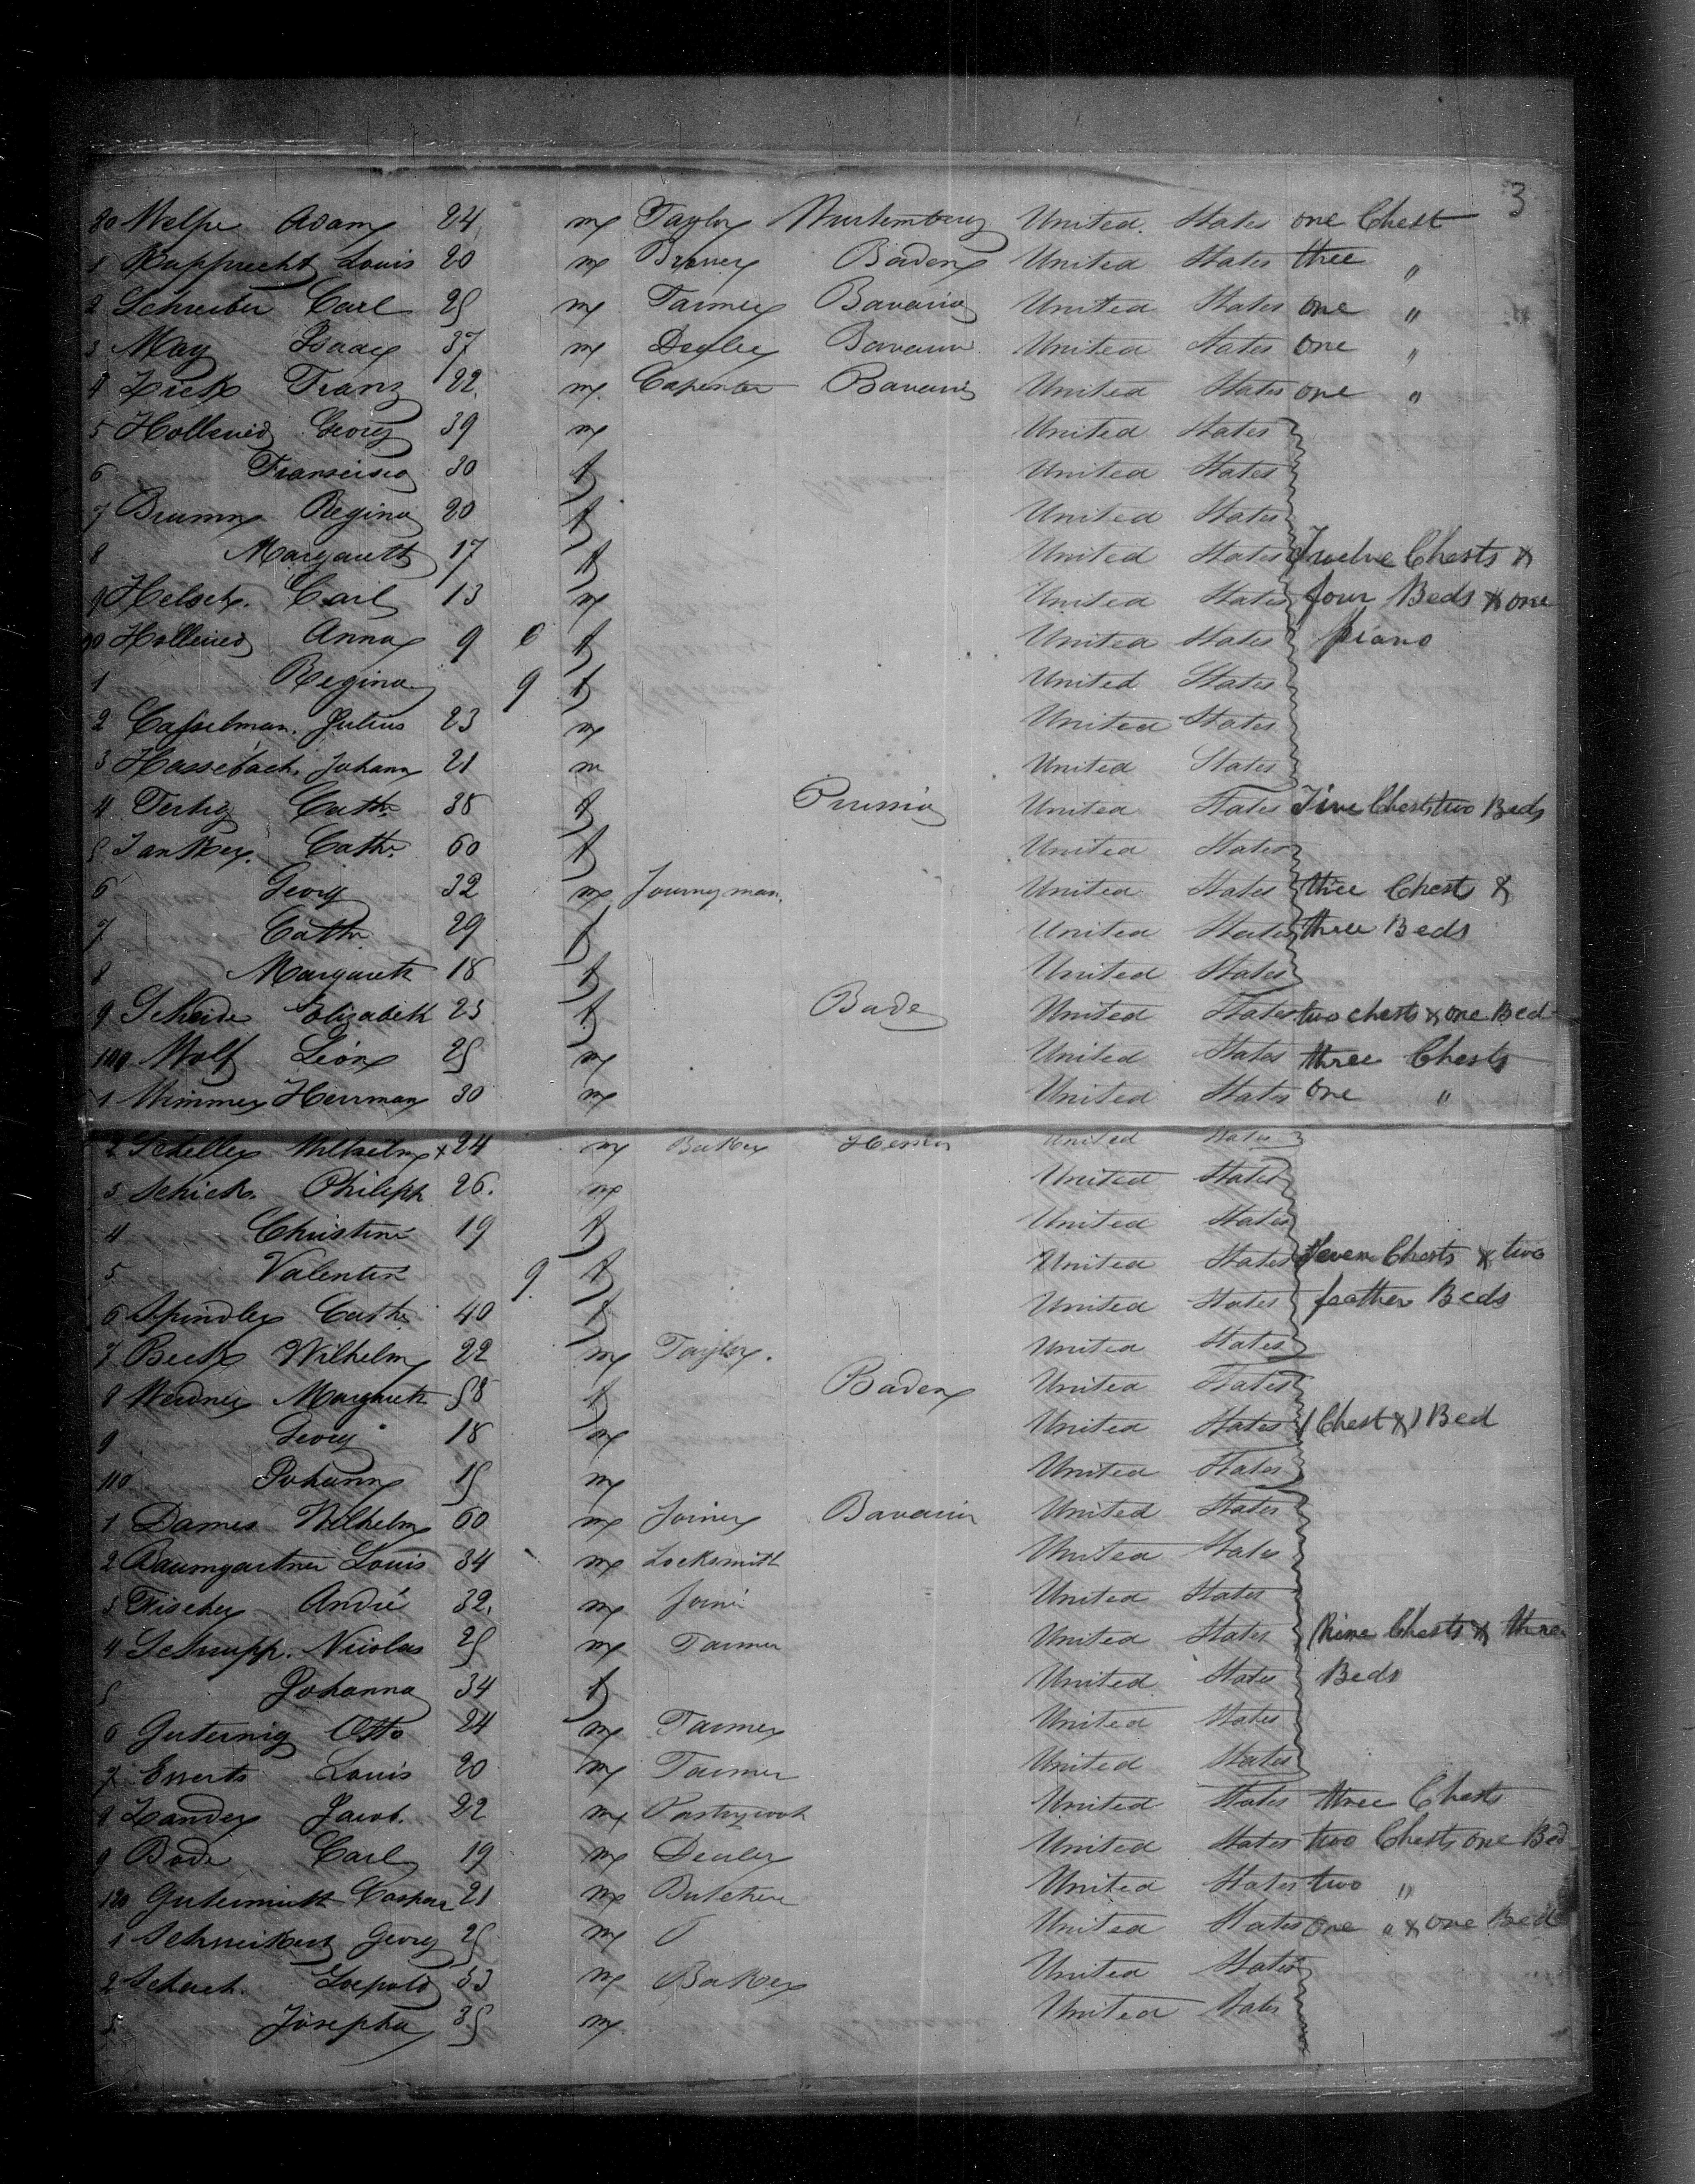 3
80 Welpe Adam 24 m Taylor Wurtemberg United States one Chest
1 Rupprecht Louis 20 m Brower Baden United States three "
2 Schreiber Carl 25 m Farmer Bavaria United States one "
3 May Isaac 37 m Bavaria United States one "
4 Zick Franz 22 m Carpenter Bavaria United States one "
5 Georg 39 m United States
6 30 f United States
7 Brumm Regina 20 f United States
8 Margareth 17 f United States Twelve Chests &
9 Carl 13 m United States four Beds & one
90 Anna 9 6 f United States piano
1 Regina 9 f United States
2 Casselman. Julius 23 m United States
3 Hassebach. Johann 21 m United States
4 Fertig Cath. 38 f Prussia United States Five Chests two Beds
5 Cath. 60 f United States
6 Georg 32 m Journyman. United States three Chests &
7 Cath. 29 f United States three Beds
8 Margareth 18 f United States
9 Elizabeth 23 f Bade United States two chests & one Bed
100 Wolf Léon 25 m United States three Chests
1 Wimmer Herrman 30 m United States one "
2 Scheller Wilhelm x 24 m Baker United States
3 Schick. Philipp 26. m United States
4 Christine 19 f United States
5 Valentin 9 f United States Seven Chests & two
6 Spindler Cath. 40 f United States feather Beds
7 Beck Wilhelm 22 m Taylor. United States
8 Margareth 58 f Baden United States
9 Georg 18 m United States 1 Chest & 1 Bed
110 Johann 15 m United States
1 Dames Wilhelm 60 m Joiner Bavaria United States
2 Baumgartner Louis 34 m Locksmith United States
3 Fischer André 32. m United States
4 Schnupp. Nicolas 25 m Farmer United States Nine Chests & three
5 Johanna 34 f United States Beds
6 Otto 24 m Farmer United States
7 Everts Louis 20 m Farmer United States
8 Zander Jacob. 22 m Pastrycook United States three Chests
9 Bode Carl 19 m Dealer United States two Chests one Bed
120 Gutermuth Caspar 21 m Butcher United States two "
1 Georg 25 m United States one " & one Bed
2 Leopold 33 m Baker United States
3. Josepha 35 m United States